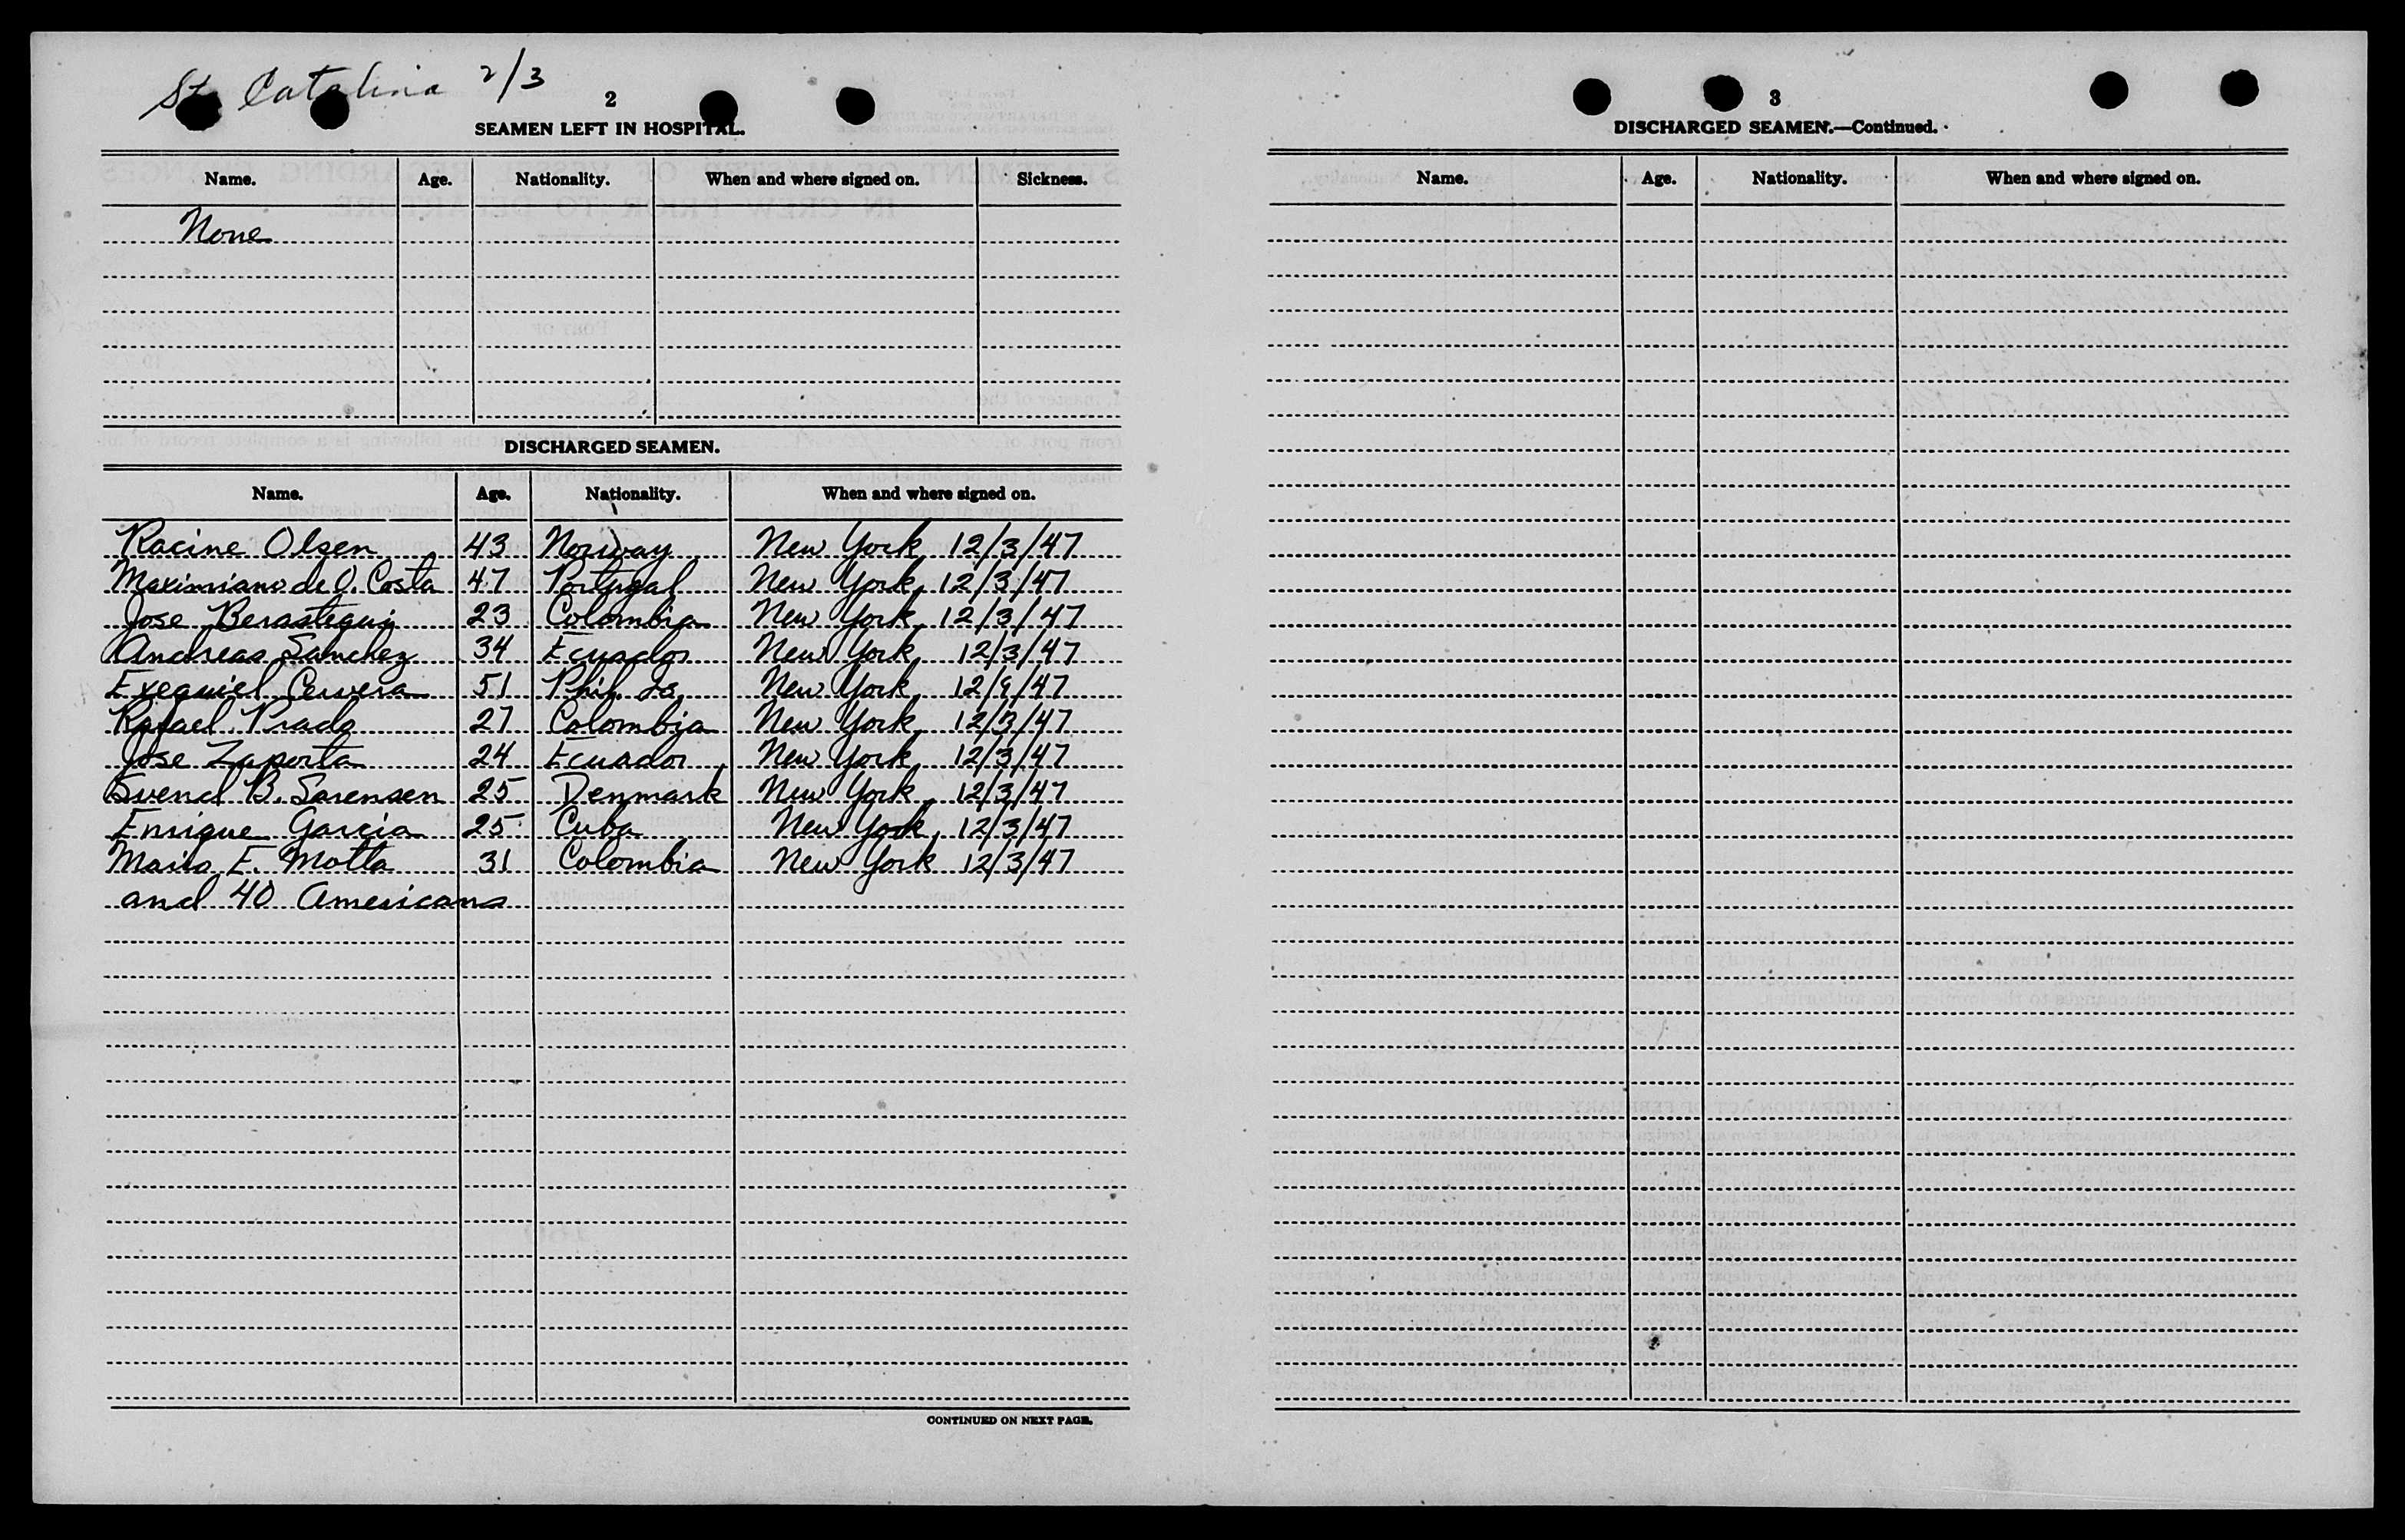 St. Catalina 2/3
2
SEAMEN LEFT IN HOSPITAL.
Name. Age. Nationality. When and where signed on. Sickness.
None
DISCHARGED SEAMEN.
Name. Age. Nationality. When and where signed on.
Racine Olsen 43 Norway New York, 12/3/47
Maximiano de O. Costa 47 Portugal New York, 12/3/47
Jose Berastegui 23 Colombia New York, 12/3/47
Andreas Sanchez 34 Ecuador New York, 12/3/47
Exequiel Cervera 51 Phil. Is. New York, 12/9/47
Rafael Prado 27 Colombia New York, 12/3/47
Jose Zaporta 24 Ecuador New York, 12/3/47
Svend B. Sorensen 25 Denmark New York, 12/3/47
Enrique Garcia 25 Cuba New York, 12/3/47
Mario E. Motta 31 Colombia New York 12/3/47
and 40 Americans
CONTINUED ON NEXT PAGE.
3
DISCHARGED SEAMEN.—Continued.
Name. Age. Nationality. When and where signed on.